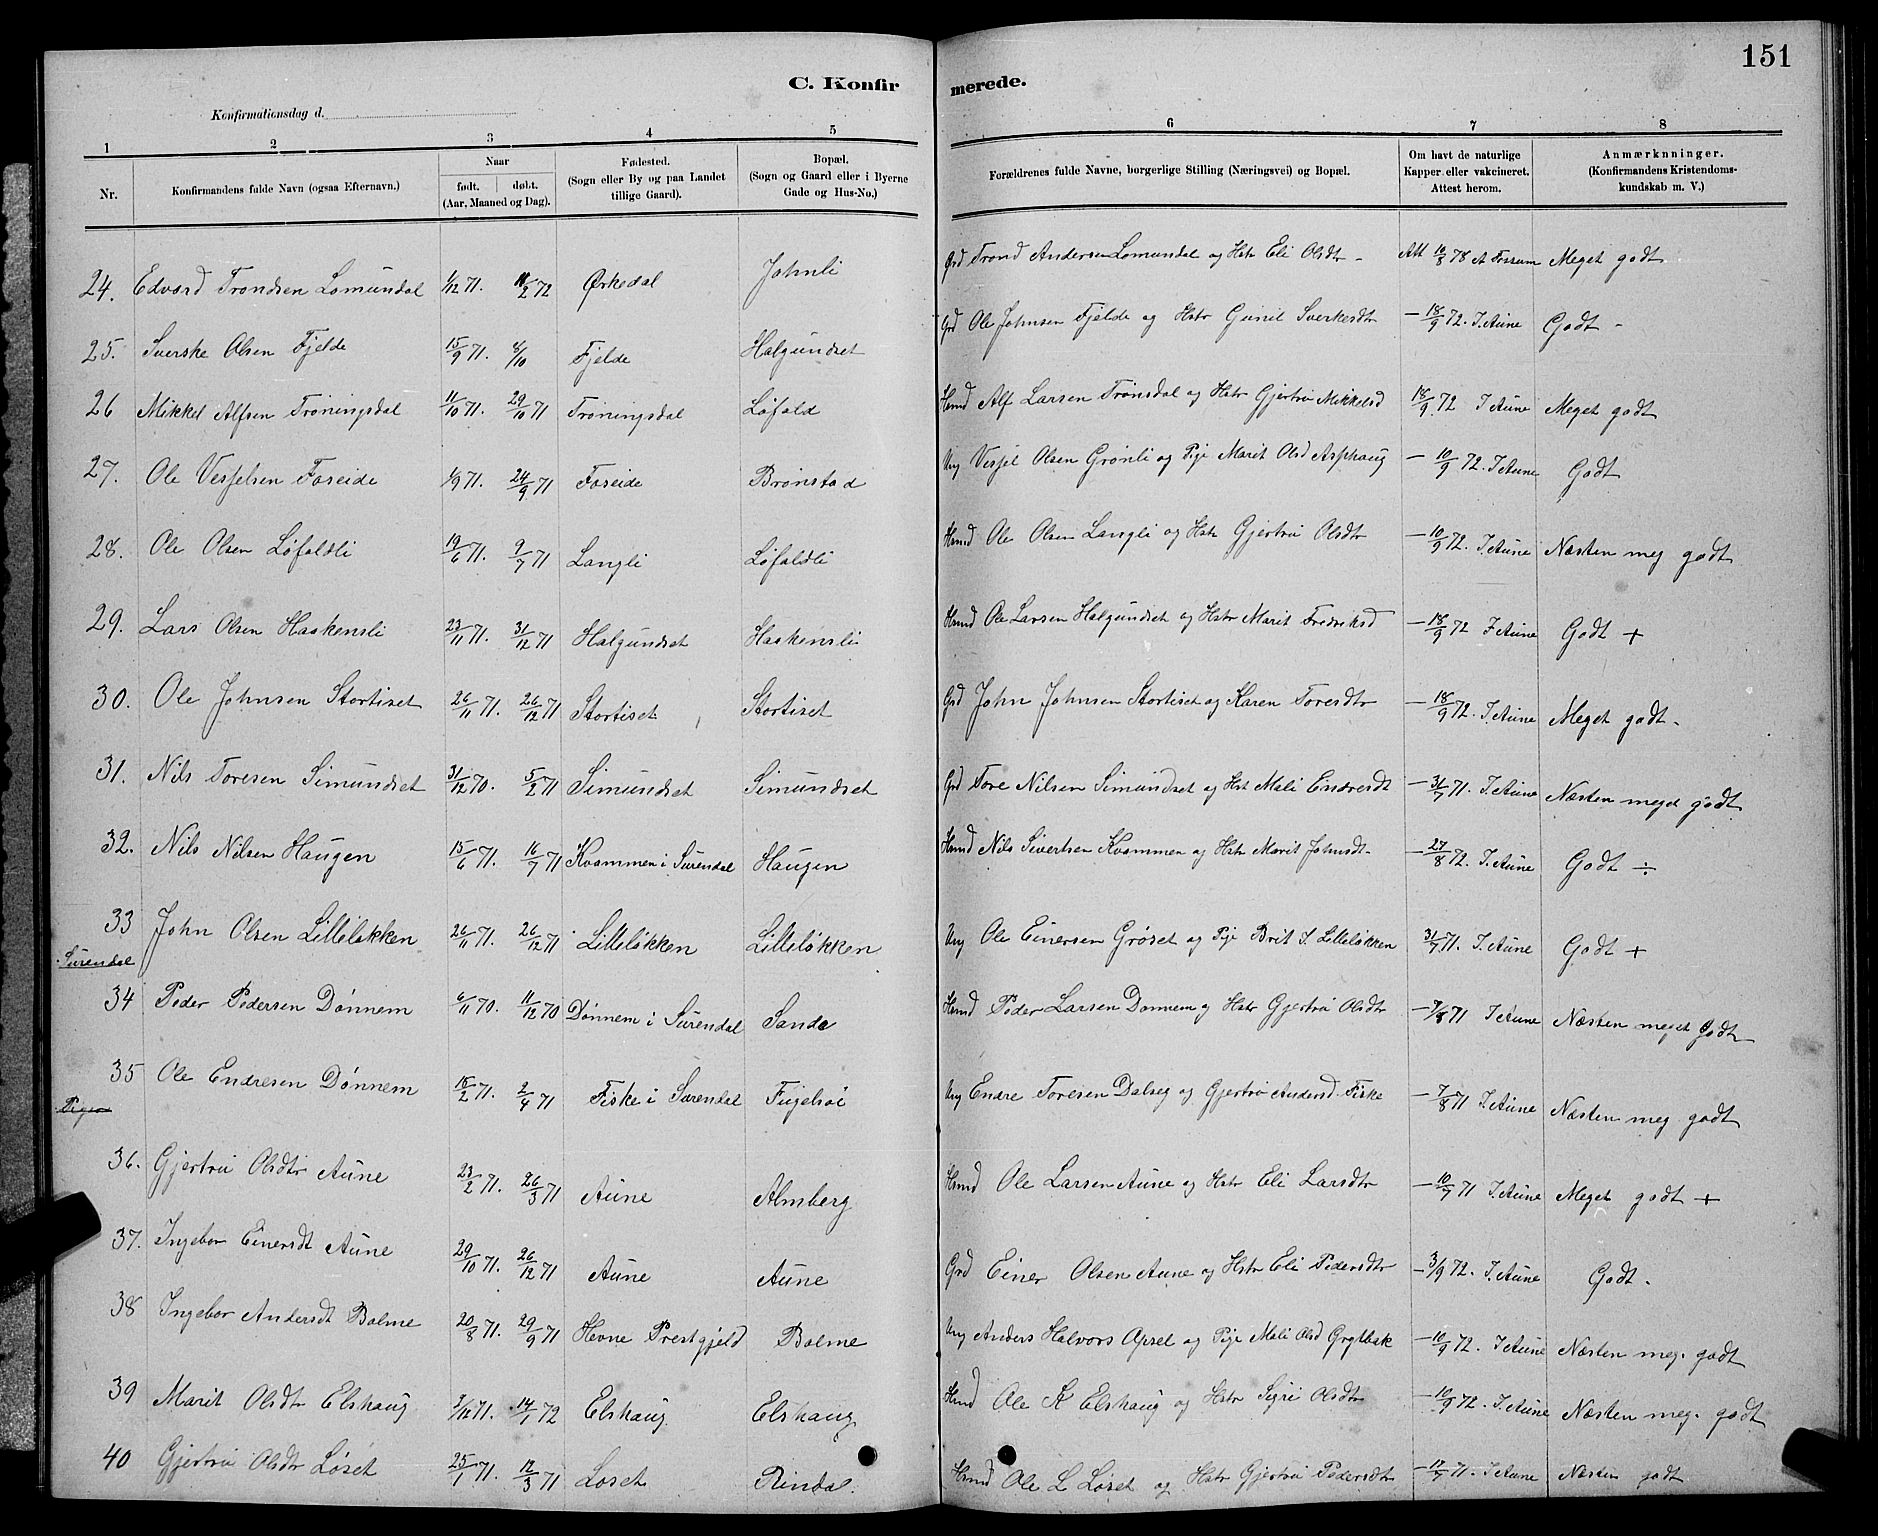 151
C. Konfirmerede.
Konfirmationsdag d.
1 2 3 4 5 6 7 8
Nr. Konfirmandens fulde Navn (ogsaa Efternavn.) Naar født. døbt. (Aar, Maaned og Dag). Fødested. (Sogn eller By og paa Landet tillige Gaard). Bopæl. (Sogn og Gaard eller i Byerne Gade og Hus-No.) Forældrenes fulde Navne, borgerlige Stilling (Næringsvei) og Bopæl. Om havt de naturlige Kapper eller vakcineret. Attest herom. Anmærknninger. (Konfirmandens Kristendomskundskab m. V.)
24. Edvard Trondsen Lomundal 1/12 71. 11/2 72 Ørkedal Johnli Grd Trond Andersen Lomundal og Hstr Eli Olsdtr - Att 10/8 78 A Fossum Meget godt
25. Sverske Olsen Fjelde 15/9 71. 8/10 Fjelde Halgundset Grd Ole Johnsen Fjelde og Hstr Gunil Sverkesdtr - 18/9 72. I. Aune Godt -
26 Mikkel Alfsen Trøningsdal 11/10 71. 29/10 71 Trøningsdal Løfald Hmd Alf Larsen Trønsdal og Hstr Gjertru Mikkelsd 18/9 72 I Aune Meget godt
27. Ole Vesselsen Foseide 1/9 71. 24/9 71 Foseide Brønstad Ung Vessel Olsen Grønli og Pige Marit Olsd Asphaug - 10/9 72. I Aune Godt
28. Ole Olsen Løfaldli 19/6 71. 9/7 71 Langli Løfaldli Hmd Ole Olsen Langli og Hstr Gjertru Olsdtr - 10/9 72. I Aune Næsten meg godt
29. Lars Olsen Haakensli 23/11 71. 31/12 71 Halgundset Haakensli Hmd Ole Larsen Halgundset og Hstr Marit Fredriksd - 18/9 72 I Aune Godt +
30. Ole Johnsen Stortiset 26/11 71. 26/12 71 Stortiset Stortiset Grd John Johnsen Stortiset og Karen Toresdtr - 18/9 72. I. Aune Meget godt -
31. Nils Toresen Simundset 31/12 70. 5/2 71 Simundset Simundset Grd Tore Nilsen Simundset og Hst Mali Endresdt - 31/7 71. I. Aune Næsten meget godt
32. Nils Nilsen Haugen 15/6 71. 16/7 71 Kvammen i Surendal Haugen Hmd Nils Sivertsen Kvammen og Hstr Marit Johnsdt - 27/8 72. I. Aune Godt ÷
33 John Olsen Lilleløkken 26/11 71. 26/12 71 Lilleløkken Lilleløkken Ung Ole Einersen Grøset og Pige Brit I. Lilleløkken 31/7 71. I. Aune Godt +
Surendal
34 Peder Pedersen Dønnem 6/11 70. 11/12 70 Dønnem i Surendal Sande Hmd Peder Larsen Dønnem og Hstr Gjertru Olsdtr - 7/8 71 I Aune Næsten meget Godt
35 Ole Endresen Dønnem 15/2 71. 2/4 71 Fiske i Surendal Fugelsøi Ung Endre Toresen Dalseg og Gjertru Andersd. Fiske - 7/8 71 I. Aune Næsten meg godt
Piger
36. Gjertru Olsdtr Aune 23/2 71. 26/3 71 Aune Almberg Hmd Ole Larsen Aune og Hstr Eli Larsdtr - 10/7 71 I. Aune Meget godt +
37. Ingebor Einersdt Aune 29/10 71. 26/12 71 Aune Aune Grd Einer Olsen Aune og Hstr Eli Pedersdtr - 3/9 72. I. Aune Godt -
38 Ingebor Andersdt Bolme 20/8 71. 29/9 71 Hevne Prestgjeld Bolme Ung Anders Halvors og Pige Mali Olsd Grytbak - 10/9 72. I Aune Næsten meg. godt
39 Marit Olsdtr Elshaug 3/12 71. 14/1 72 Elshaug Elshaug Hmd Ole K Elshaug og Hstr Sigri Olsdtr - 10/9 72. I. Aune Næsten meg. godt
40 Gjertru Olsdtr Løset 25/1 71. 12/3 71 Løset Rindal. Hmd Ole L Løset og Hstr Gjertru Pedersdtr - 17/7 71. I. Aune Næsten godt